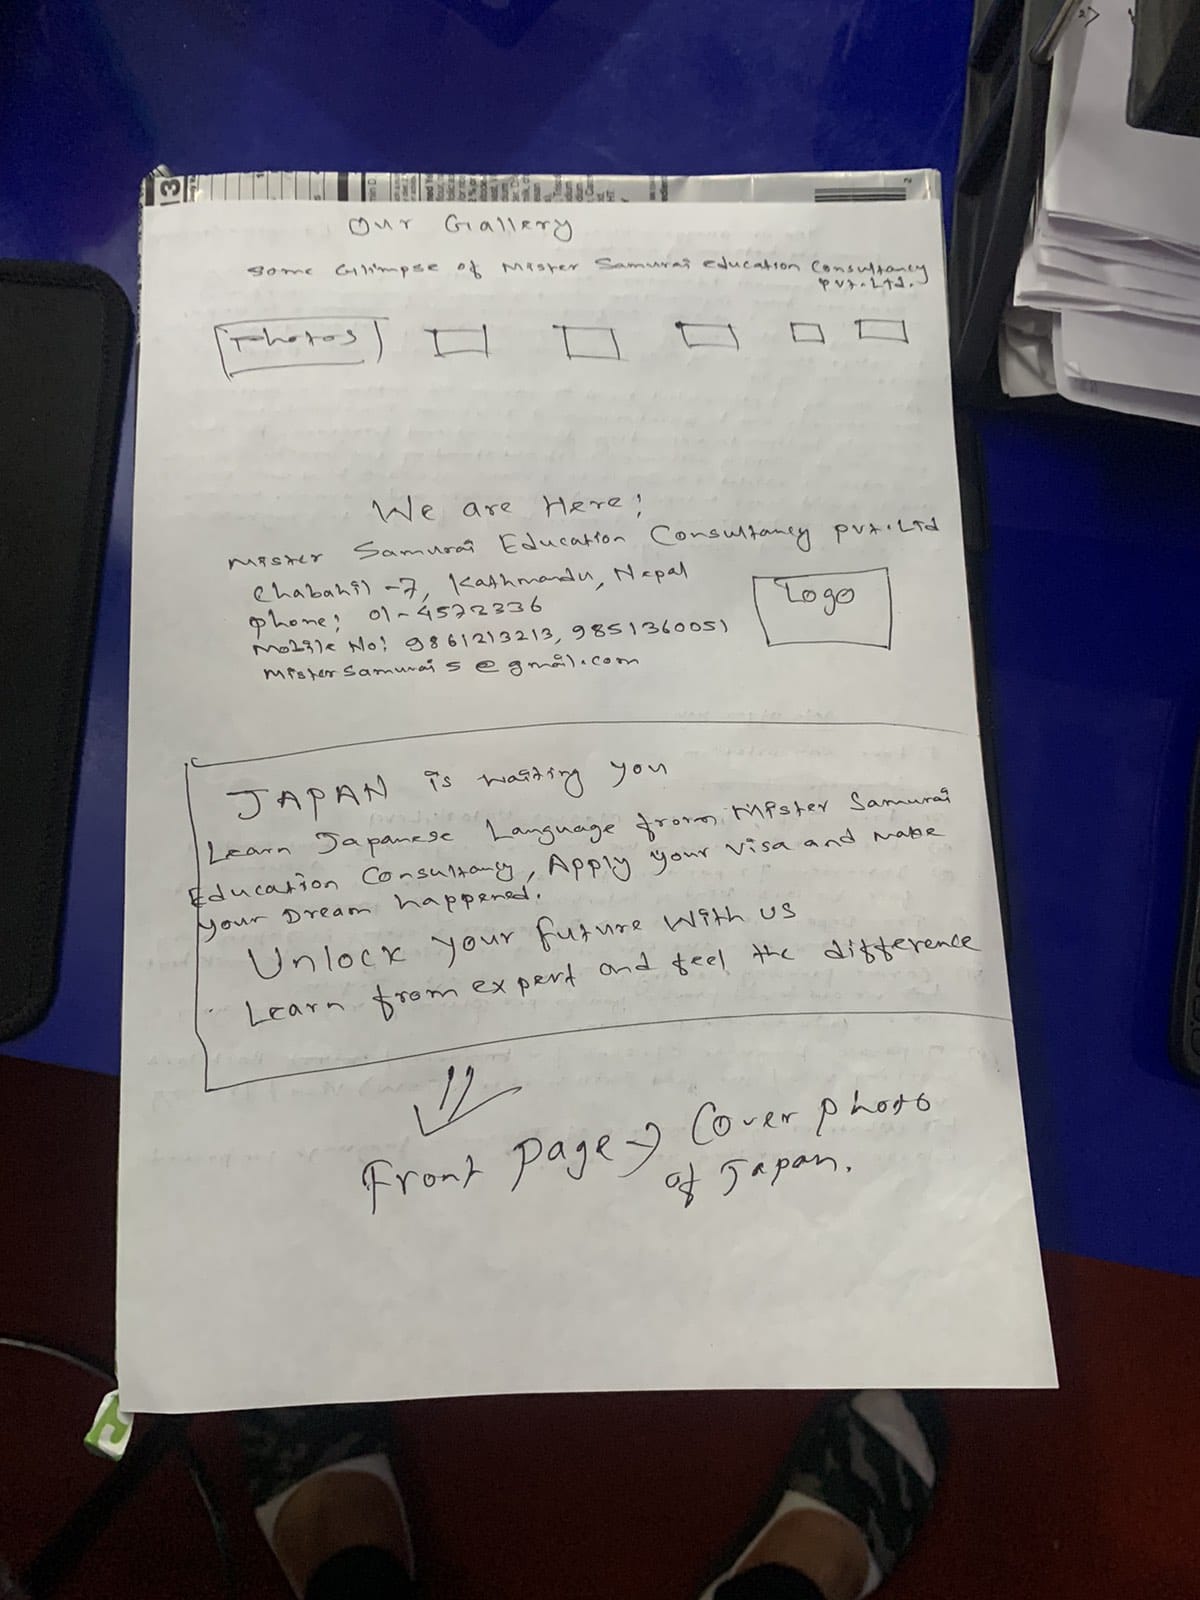 Our Gallery
Some Glimpse of Mister Samurai Education Consultancy
Pvt. Ltd.
Photos
We are Here:
Mister Samurai Education Consultancy Pvt. Ltd
Chabahil -7, Kathmandu, Nepal
Phone: 01-4572336
Mobile No: 9861213213, 9851360051
Mister Samurai 5 @ gmail.com
Logo
JAPAN is waiting you
Learn Japanese Language from Mister Samurai
Education Consultancy, Apply your Visa and Make
your Dream happened.
Unlock your future with us
Learn from expert and feel the difference
Front page → Cover photo
of Japan.